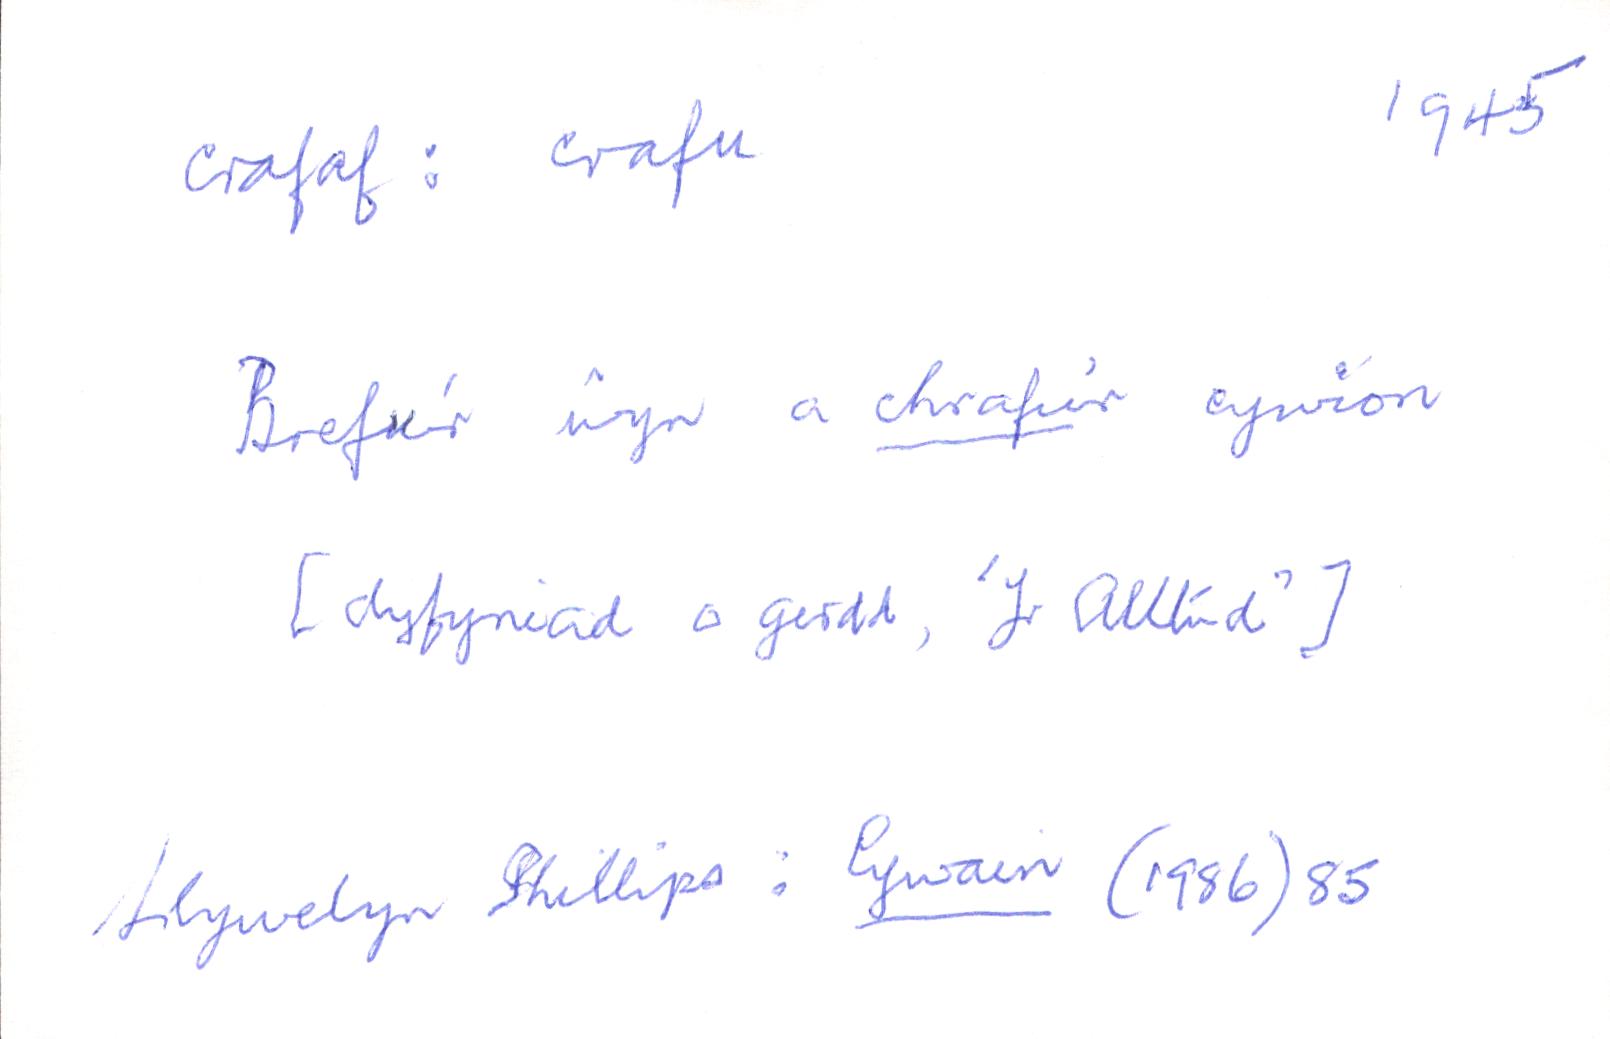 1945
crafaf : crafu
Brefu'r ŵyn a chrafu'r cywion
[dyfyniad o gerdd, 'Yr Alltud']
Llywelyn Phillips : Cywain (1986) 85